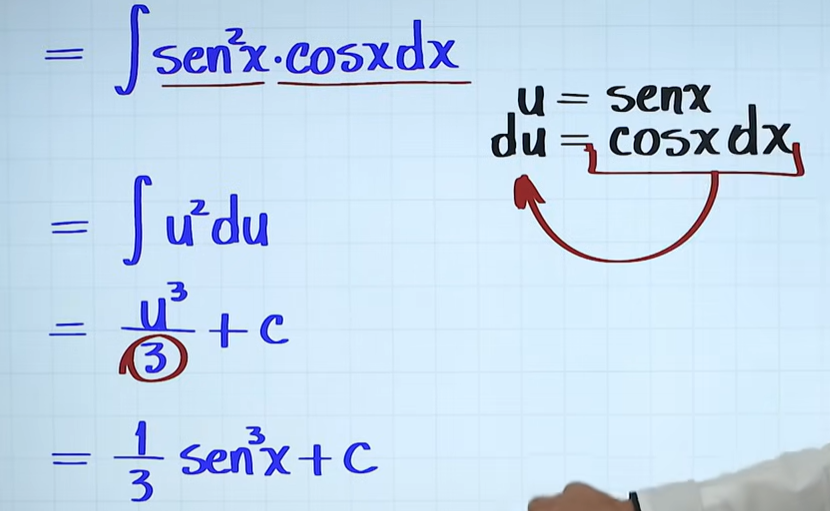 = ∫sen²x·cosxdx
u = senx
du = cosxdx
= ∫u²du
= u³/3 + c
= 1/3 sen³x + c